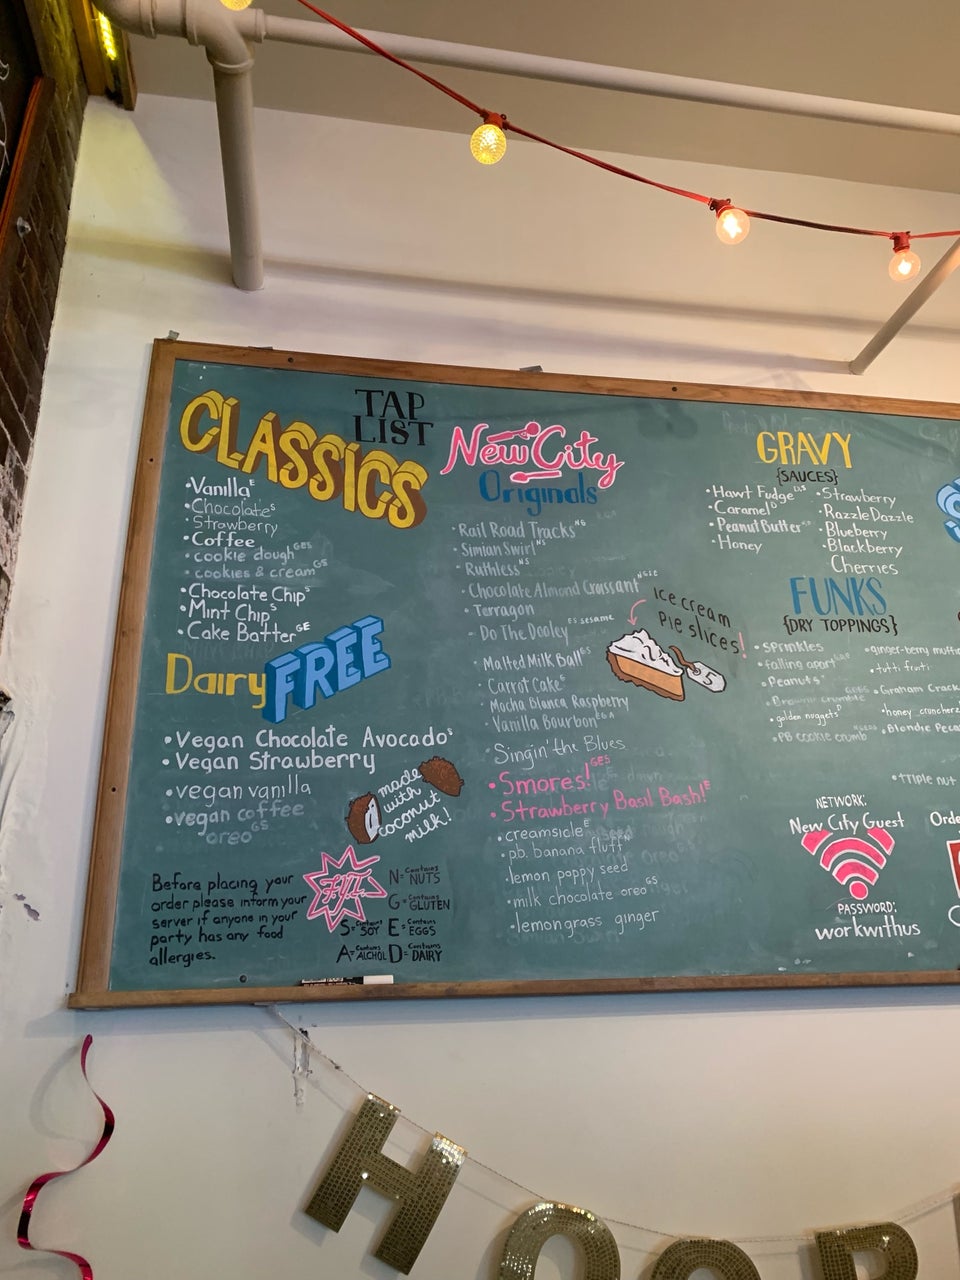 TAP
LIST
CLASSICS
•Vanilla E
•Chocolate S
Strawberry
•Coffee
•cookie dough GES
•cookies & cream GS
•Chocolate Chip S
•Mint Chip S
•Cake Batter GE
Dairy FREE
•Vegan Chocolate Avocado S
•Vegan Strawberry
•vegan vanilla
•vegan coffee
oreo GS
made
with
coconut
milk!
Before placing your
order please inform your
server if anyone in your
party has any food
allergies.
F.Y.I.
N= Contains NUTS
G= Contains GLUTEN
S= Contains SOY E= Contains EGGS
A= Contains ALCHOL D= Contains DAIRY
New City
Originals
•Rail Road Tracks NG
•Simian Swirl NS
•Ruthless NS
•Chocolate Almond Croissant
•Terragon
•Do The Dooley ES sesame
•Malted Milk Ball GS
•Carrot Cake E
•Mocha Blanca Raspberry
•Vanilla Bourbon
•Singin' the Blues
•Smores! GES
•Strawberry Basil Bash! E
•creamsicle E
•pb. banana fluff
•lemon poppy seed
•milk chocolate oreo GS
•lemongrass ginger
ice cream
pie slices!
5
GRAVY
{SAUCES}
•Hawt Fudge
•Caramel D
•Peanut Butter
•Honey
•Strawberry
•RazzleDazzle
•Blueberry
•Blackberry
Cherries
FUNKS
{DRY TOPPINGS}
•sprinkles
•falling apart
•Peanuts
•Brownie crumble
•golden nuggets D
•PB cookie crumb
•ginger-berry muffi
•tutti fruti
•Graham Crack
•honey cruncherz
•Blondie Peca
•triple nut
NETWORK:
New City Guest
PASSWORD:
workwithus
Orde
HOOR